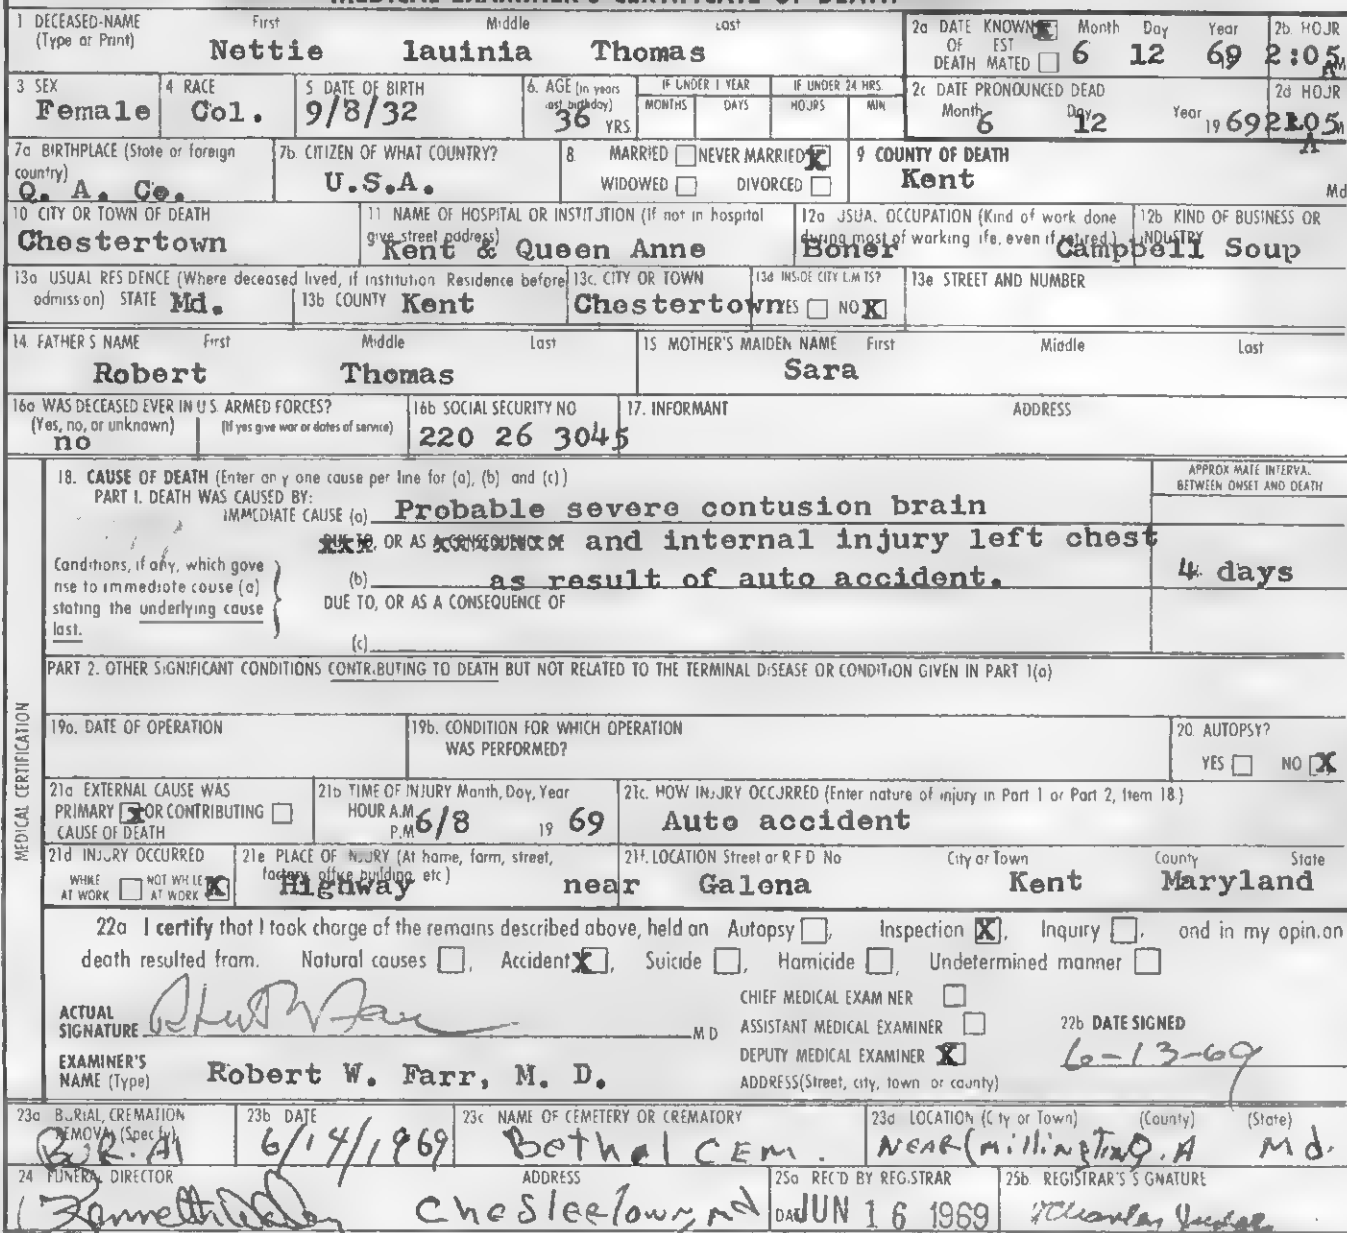 MEDICAL EXAMINER'S CERTIFICATE OF DEATH
1 DECEASED-NAME (Type or Print) First Middle Last
Nettie lauinia Thomas
2a DATE OF DEATH KNOWN X ESTIMATED Month Day Year 6 12 69
2b. HOUR 2:05 A M
3 SEX Female
4 RACE Col.
5 DATE OF BIRTH 9/8/32
6. AGE (In years last birthday) 36 YRS
IF UNDER 1 YEAR MONTHS DAYS
IF UNDER 24 HRS. HOURS MIN
2c DATE PRONOUNCED DEAD Month 6 Day 12 Year 19 69
2d HOUR 2:05 A M
7a BIRTHPLACE (State or foreign country) Q. A. Co.
7b. CITIZEN OF WHAT COUNTRY? U.S.A.
8 MARRIED NEVER MARRIED X WIDOWED DIVORCED
9 COUNTY OF DEATH Kent Md
10 CITY OR TOWN OF DEATH Chestertown
11 NAME OF HOSPITAL OR INSTITUTION (If not in hospital give street address) Kent & Queen Anne
12a USUAL OCCUPATION (Kind of work done during most of working life, even if retired) Boner
12b KIND OF BUSINESS OR INDUSTRY Campbell Soup
13a USUAL RESIDENCE (Where deceased lived, if institution Residence before admission) STATE Md.
13b COUNTY Kent
13c. CITY OR TOWN Chestertown
13d INSIDE CITY LIMITS? YES NO X
13e STREET AND NUMBER
14. FATHER'S NAME First Middle Last
Robert Thomas
15 MOTHER'S MAIDEN NAME First Middle Last
Sara
16a WAS DECEASED EVER IN U.S. ARMED FORCES? (Yes, no, or unknown) (If yes give war or dates of service) no
16b SOCIAL SECURITY NO 220 26 3045
17. INFORMANT ADDRESS
18. CAUSE OF DEATH (Enter only one cause per line for (a), (b) and (c))
APPROXIMATE INTERVAL BETWEEN ONSET AND DEATH
PART I. DEATH WAS CAUSED BY:
IMMEDIATE CAUSE (a) Probable severe contusion brain
DUE TO, OR AS A CONSEQUENCE OF and internal injury left chest
Conditions, if any, which gave rise to immediate cause (a) stating the underlying cause last.
(b) as result of auto accident. 4 days
DUE TO, OR AS A CONSEQUENCE OF
(c)
PART 2. OTHER SIGNIFICANT CONDITIONS CONTRIBUTING TO DEATH BUT NOT RELATED TO THE TERMINAL DISEASE OR CONDITION GIVEN IN PART 1(a)
MEDICAL CERTIFICATION
19a. DATE OF OPERATION
19b. CONDITION FOR WHICH OPERATION WAS PERFORMED?
20. AUTOPSY? YES NO X
21a EXTERNAL CAUSE WAS PRIMARY X OR CONTRIBUTING CAUSE OF DEATH
21b TIME OF INJURY Month, Day, Year HOUR A.M. P.M 6/8 19 69
21c. HOW INJURY OCCURRED (Enter nature of injury in Part 1 or Part 2, Item 18.)
Auto accident
21d INJURY OCCURRED WHILE AT WORK NOT WHILE AT WORK X
21e PLACE OF INJURY (At home, farm, street, factory, office building, etc) Highway near
21f. LOCATION Street or R F D No City or Town County State
Galena Kent Maryland
22a I certify that I took charge of the remains described above, held an Autopsy , Inspection X, Inquiry , and in my opinion
death resulted from. Natural causes , Accident X, Suicide , Homicide , Undetermined manner
ACTUAL SIGNATURE M D
CHIEF MEDICAL EXAMINER
ASSISTANT MEDICAL EXAMINER
DEPUTY MEDICAL EXAMINER X
22b DATE SIGNED 6-13-69
EXAMINER'S NAME (Type) Robert W. Farr, M. D.
ADDRESS (Street, city, town or county)
23a BURIAL, CREMATION REMOVAL (Specify) BURiAl
23b DATE 6/14/1969
23c NAME OF CEMETERY OR CREMATORY Bethel CEM.
23d LOCATION (City or Town) (County) (State)
NEAR (Millington) Q.A Md.
24 FUNERAL DIRECTOR ADDRESS
Kenneth Chestertown, md
25a REC'D BY REGISTRAR DATE JUN 16 1969
25b. REGISTRAR'S SIGNATURE
Charles Judge